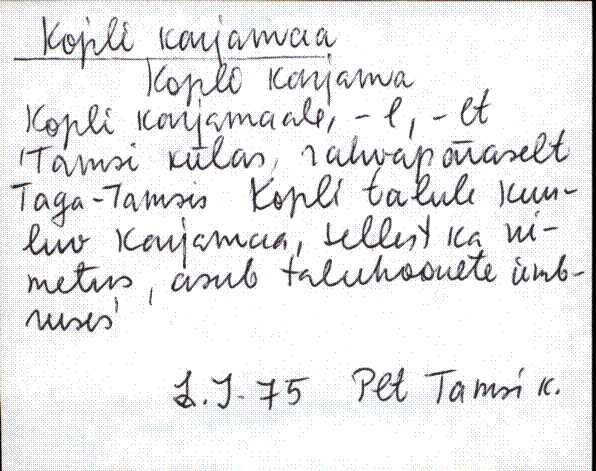 Kopli karjamaa
Koplo karjama
Kopli karjamaale, -l, -lt
'Tamsi külas, rahvapäraselt
Taga-Tamsis Kopli talule kuu-
luv karjamaa, sellest ka ni-
metus, asub taluhoonete ümb-
ruses'
L.J. 75 Plt Tamsi k.